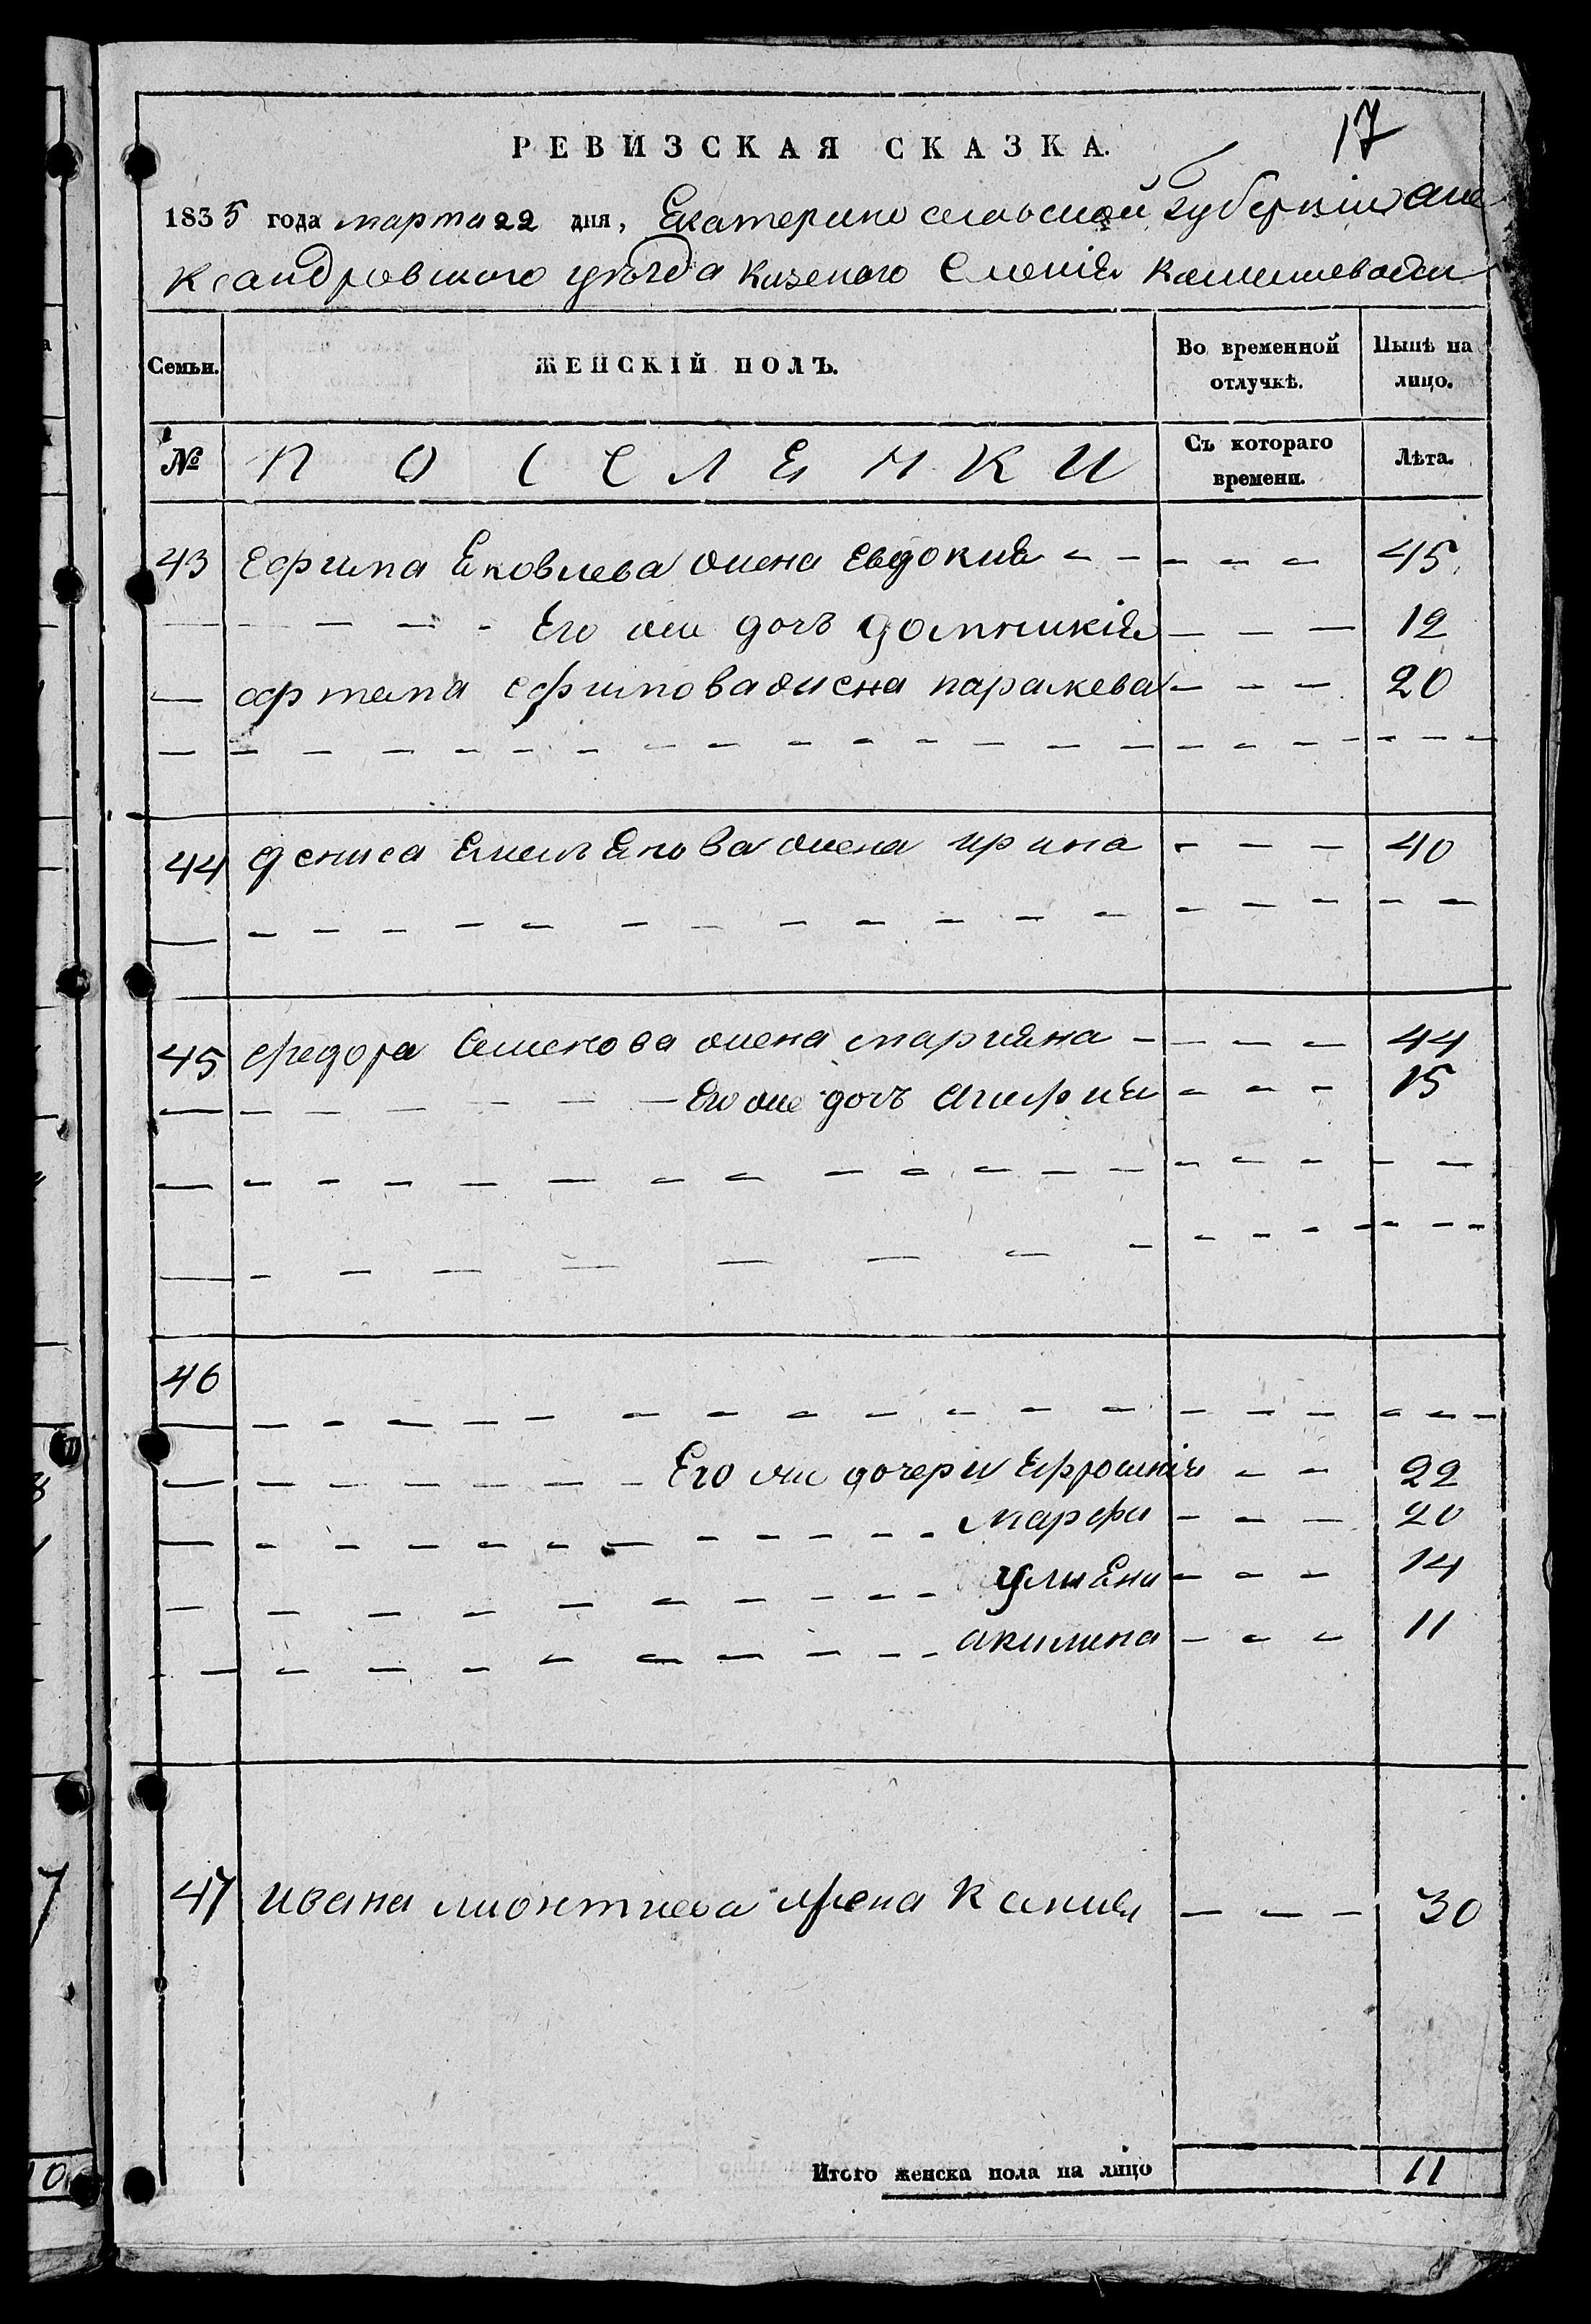 17
РЕВИЗСКАЯ СКАЗКА.
1835 года марта 22 дня, Екатеринославской губернии Але
ксандровского уѣзда казеного Селения
Семьи. ЖЕНСКІЙ ПОЛЪ. Во временной отлучкѣ. Нынѣ на лицо.
№ ПОСЕЛЕНКИ Съ котораго времени. Лѣта.
43 Ефима Яковлева жена Евдокия - - - - - 45
- - - - Его же дочь домникія - - - 12
- Ефимова жена параскева - - - 20
44 дениса Емельянова жена ирина - - - 40
45 федора Семенова жена марияна - - - - 44
- - - - - - Его же дочь агафия - - - 15
46
- - - - - - - Его же дочери Ефросинія - - 22
марфа - - - 20
улияна - - - 14
акилина - - - 11
47 ивана лионтиева жена Ксения - - - 30
Итого женска пола на лицо 11